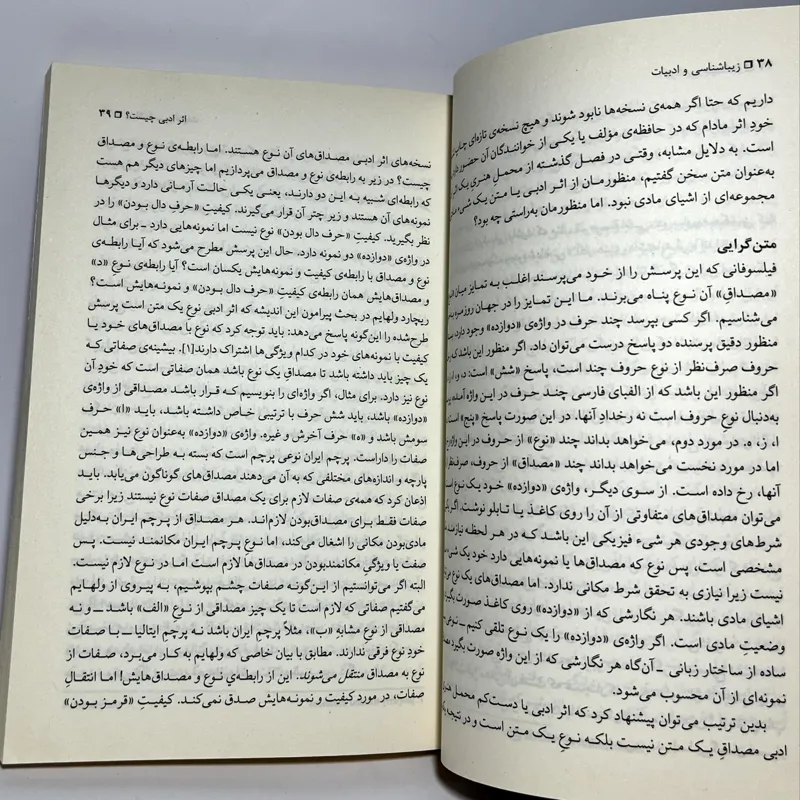 ۳۸ ❒ زیباشناسی و ادبیات
داریم که حتا اگر همه‌ی نسخه‌ها نابود شوند و هیچ نسخه‌ی تازه‌ای
خودِ اثر مادام که در حافظه‌ی مؤلف یا یکی از خوانندگان آن حضور
است. به دلایل مشابه، وقتی در فصل گذشته از محملِ هنریِ یک
به‌عنوان متن سخن گفتیم، منظورمان از اثـر ادبـی یـا متن یـک
مجموعه‌ای از اشیای مادی نبود. اما منظورمان به‌راستی چه بود؟
متن‌گرایی
فیلسوفانی که این پرسش را از خود می‌پرسند اغلب به تمایز میان
«مصداق» آن نوع پناه می‌برند. مـا ایـن تمـایز را در جهـان روزمره
می‌شناسیم. اگر کسی بپرسد چند حرف در واژه‌ی «دوازده» وجود دارد،
منظور دقیق پرسنده دو پاسخ درست می‌توان داد. اگر منظور این باشد که
حروف صرف‌نظر از نوع حروف چند است، پاسخ «شش» است: د، و،
اگر منظور این باشد که از الفبای فارسی چند حرف در این واژه آمده
به‌دنبال نوعِ حروف است نه رخدادِ آنها. در این صورت پاسخ «پنج» است:
ا، ز، ه. در مورد دوم، می‌خواهد بداند چند «نوع» از حروف در این واژه
اما در مورد نخست می‌خواهد بداند چند «مصداق» از حروف، صرف‌نظر
آنها، رخ داده است. از سوی دیگر، واژه‌ی «دوازده» خود یک نوع
می‌توان مصداق‌های متفاوتی از آن را روی کاغذ یا تابلو نوشت. اگر یکی
شرط‌های وجودی هر شیء فیزیکی این باشد که در هر لحظه نیازمند
مشخصی است، پس نوع که مصداق‌ها یا نمونه‌هایی دارد خود یک
نیست زیرا نیازی به تحقق شرط مکانی ندارد. اما مصداق‌های یک نوع
اشیای مادی باشند. هر نگارشی که از «دوازده» روی کاغـذ صورت بگیرد
وضعیتِ مادی است. اگر واژه‌ی «دوازده» را یـک نـوع تلقی کنیم ـ نوعی
ساده از ساختار زبانی - آن‌گاه هر نگارشی که از این واژه صورت بگیرد
نمونه‌ای از آن محسوب می‌شود.
بدین ترتیب می‌توان پیشنهاد کرد که اثر ادبی یا دست‌کم محمل
ادبی مصداقِ یـک متن نیست بلکه نـوعِ یـک متن است و در نتیجه
اثر ادبی چیست؟ ❒ ۳۹
نسخه‌های اثر ادبـی مصداق‌های آن نـوع هستند. امـا رابطـه‌ی نـوع و مصـداق
چیست؟ در زیر به رابطه‌ی نوع و مصداق می‌پردازیم اما چیزهای دیگر هم هست
که رابطه‌ای شبیه به این دو دارند، یعنی یکی حالت آرمانی دارد و دیگرها
نمونه‌های آن هستند و زیر چتر آن قرار می‌گیرند. کیفیتِ «حرفِ دال بودن» را در
نظر بگیرید. کیفیت «حرف دال بودن» نوع نیست اما نمونه‌هایی دارد - برای مثال
در واژه‌ی «دوازده» دو نمونه دارد. حال این پرسش مطرح می‌شود که آیا رابطه‌ی
نوع و مصداق با رابطه‌ی کیفیت و نمونه‌هایش یکسان است؟ آیا رابطه‌ی نوع «د»
و مصداق‌هایش همان رابطه‌ی کیفیتِ «حرف دال بودن» و نمونه‌هایش است؟
ریچارد ولهایم در بحث پیرامون این اندیشه که اثر ادبی نوعِ یک متن است پرسش
طرح‌شده را این‌گونه پاسخ می‌دهد: باید توجه کرد که نوع با مصداق‌های خود یا
کیفیت با نمونه‌های خود در کدام ویژگی‌ها اشتراک دارند[۱]. بیشینه‌ی صفاتی که
یک چیز باید داشته باشد تا مصداقِ یک نوع باشد همان صفاتی است که خودِ آن
نوع نیز دارد. برای مثال، اگر واژه‌ای را بنویسیم که قـرار باشد مصداقی از واژه‌ی
«دوازده» باشد، باید شش حرف با ترتیبی خاص داشته باشد، باید «ا» حرف
سومش باشد و «ه» حرف آخرش و غیره. واژه‌ی «دوازده» به‌عنوان نوع نیز همین
صفات را داراست. پرچم ایران نوعی پرچم است که بسته به طراحی‌ها و جنس
پارچه و اندازه‌های مختلفی که به آن می‌دهند مصداق‌های گوناگون می‌یابد. باید
اذعان کرد که همه‌ی صفات لازم برای یک مصداق صفات نوع نیستند زیرا برخی
صفات فقط برای مصداق‌بودن لازم‌اند. هر مصـداق از پرچـم ایران به‌دلیل
مادی‌بودن مکانی را اشغال می‌کند، اما نوعِ پرچم ایران مکانمند نیست. پس
صفت یا ویژگی مکانمندبودن در مصداق لازم است اما در نوع لازم نیست.
البته اگر می‌توانستیم از این‌گونه صفات چشم بپوشیم، به پیروی از ولهایم
می‌گفتیم صفاتی که لازم است تا یک چیز مصداقی از نوعِ «الف» باشد ـ و نه
مصداقی از نوع مشابهِ «ب»، مثلاً پرچم ایران باشد نه پرچم ایتالیا ـ با صفات
خودِ نوع فرقی ندارند. مطابق با بیان خاصی که ولهایم به کار می‌برد، صفات از
نوع به مصداق منتقل می‌شوند. این از رابطه‌ی نوع و مصداق‌هایش! اما انتقالِ
صفات، در مورد کیفیت و نمونه‌هایش صدق نمی‌کند. کیفیتِ «قرمز بودن»